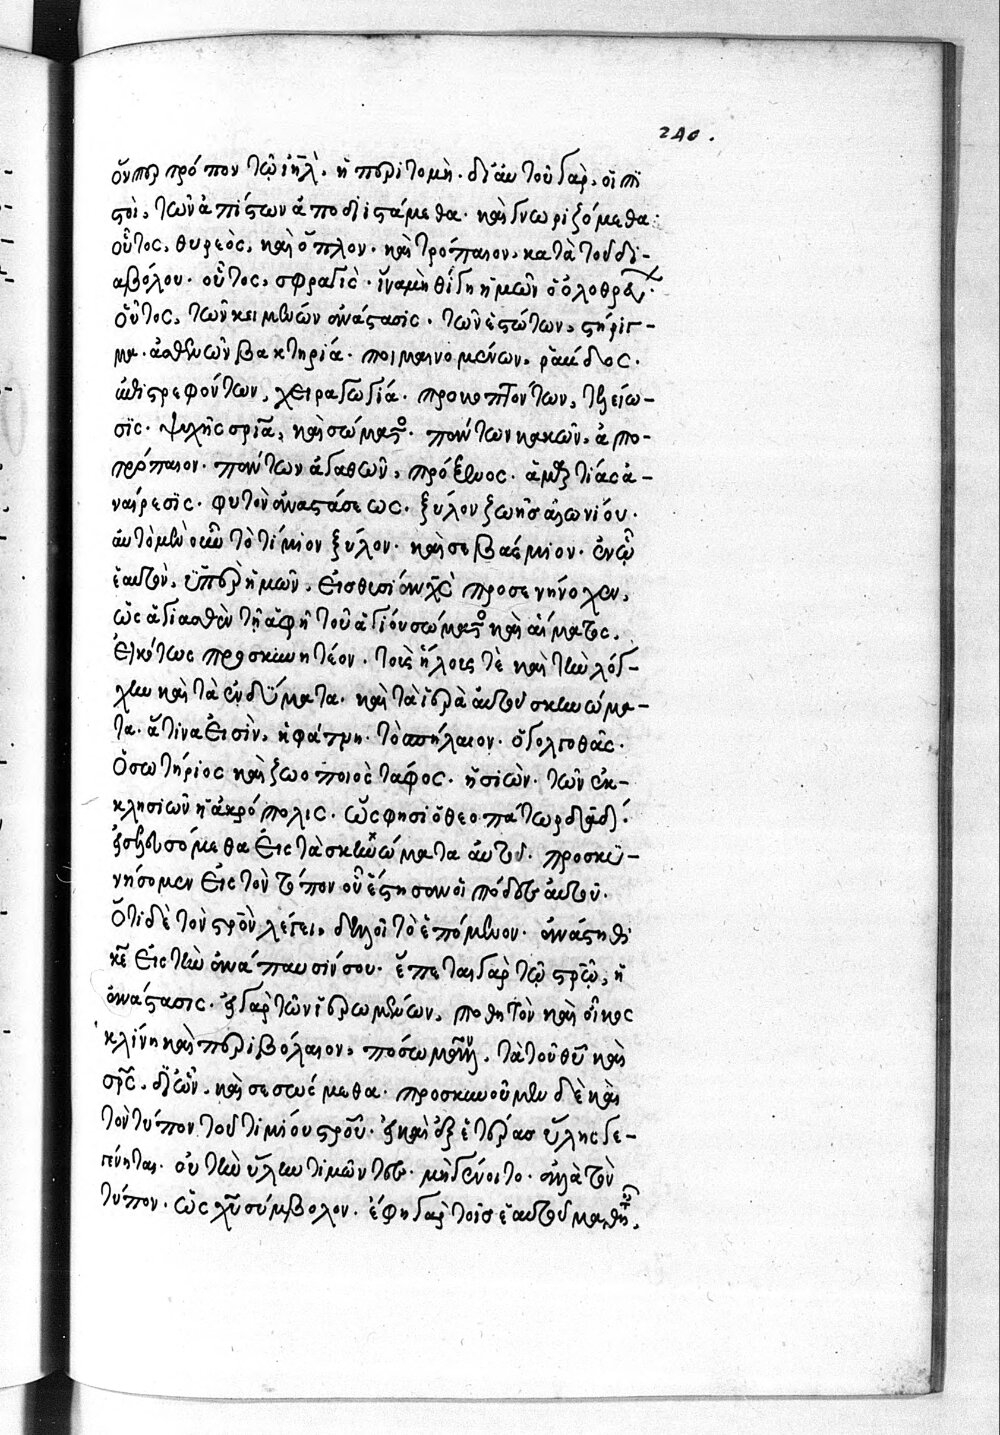 240.
ὅνπερ τρόπον τῷ ἰηλ̀, ἡ περιτομὴ· δι' αὐτοῦ γὰρ, οἱ πι
στοὶ, τῶν ἀπίστων ἀποδιϊστάμεθα· καὶ γνωριζόμεθα·
οὗτος, θυρεὸς, καὶ ὅπλον· καὶ τρόπαιον, κατὰ τοῦ δι-
αβόλου· οὗτος, σφραγὶς· ἵνα μὴ θίγη ἡμῶν ὁ ὀλοθρεύων·
οὗτος, τῶν κειμένων ἀνάστασις· τῶν ἑστώτων, στήριγ-
μα· ἀσθενῶν βακτηρία· ποιμαινομένων, ῥάβδος·
ἐπιστρεφόντων, χειραγωγία· προκοπτόντων, τελείω-
σϊς· ψυχῆς σρία, καὶ σώματος· πάντων κακῶν, ἀπο-
τρόπαιον· πάντων ἀγαθῶν, πρόξενος· ἁμαρτίας ἀ-
ναίρεσϊς· φυτὸν ἀναστάσεως· ξύλον ζωῆς αἰωνίου·
αὐτὸ μὲν οὖν τὸ τίμιον ξύλον· καὶ σεβάσμιον· ἐν ᾧ
ἑαυτὸν, ὑπὲρ ἡμῶν, εἰς θυσίαν χς̀ προσενήνοχεν,
ὡς ἁγιασθὲν τῇ ἁφῇ τοῦ ἁγίου σώματος καὶ αἵματος,
εἰκότως προσκυνητέον· τοὺς ἥλους τὲ καὶ τὴν λόγ-
χην καὶ τὰ ἐνδύματα· καὶ τὰ ἱερὰ αὐτοῦ σκηνώμα-
τα· ἅτινα εἰσὶν, ἡ φάτνη· τὸ σπήλαιον· ὁ γολγοθᾶς·
Ὁ σωτήριος καὶ ζωοποιὸς τάφος· ἡ σιὼν· τῶν ἐκ-
κλησιῶν ἡ ἀκρόπολις· ὥς φησὶ ὁ θεοπάτωρ δᾱδ·
εἰσελευσόμεθα εἰς τὰ σκηνώματα αὐτοῦ· προσκυ-
νήσομεν εἰς τὸν τόπον οὗ ἔστησαν οἱ πόδες αὐτοῦ·
Ὅτι δὲ τὸν σρὸν λέγει, δηλοῖ τὸ ἑπόμενον· ἀνάστηθι
κε εἰς τὴν ἀνάπαυσίν σου· ἕπεται γὰρ τῷ σρῷ, ἡ
ἀνάστασις· εἰ γὰρ τῶν ἐρωμένων, ποθητὸν καὶ οἶκος
κλίνη καὶ περιβόλαιον, πόσω μᾶλλον, τὰ τοῦ θῦ καὶ
σρς, δι' ὧν, καὶ σεσώσμεθα· προσκυνοῦμεν δὲ καὶ
τὸν τύπον τοῦ τιμίου σροῦ· εἰ καὶ ἐξ ἑτέρας ὕλης γε-
γένηται· οὐ τὴν ὕλην τιμῶντες· μὴ γένοιτο· ἀλλὰ τὸν
τύπον· ὡς χῦ σύμβολον· ἔφη γὰρ τοῖς ἑαυτοῦ μαθη,